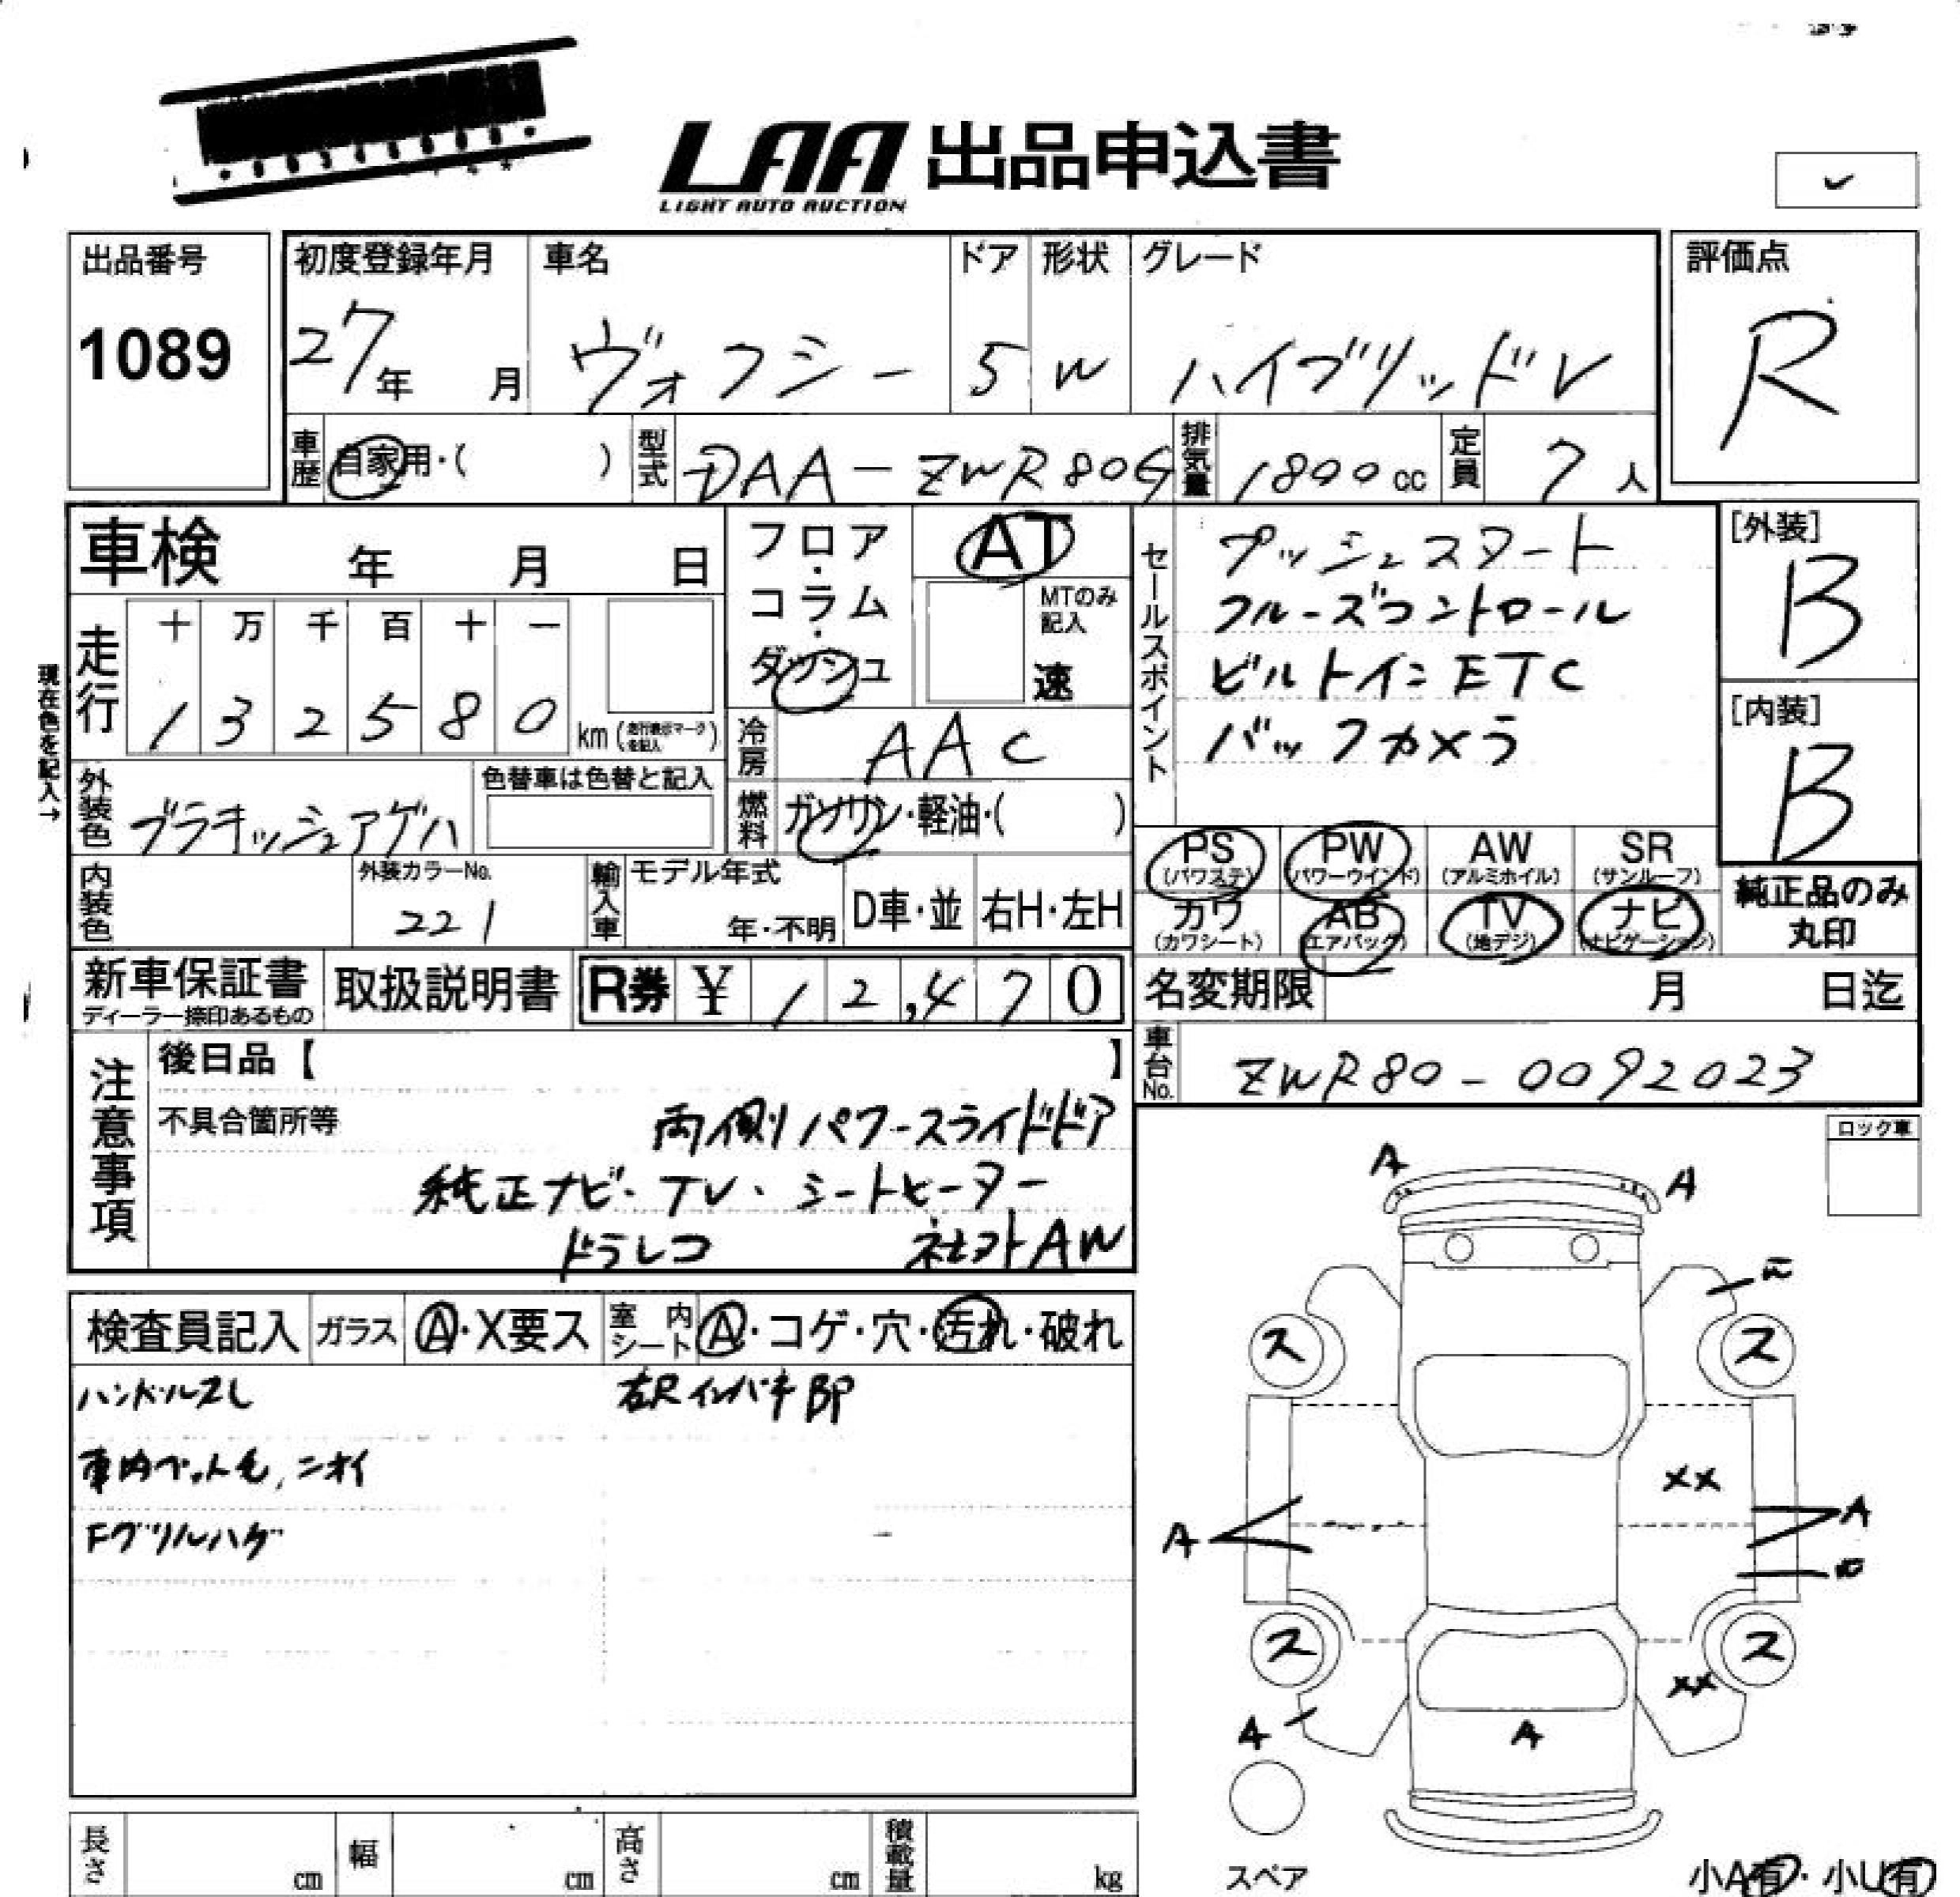 LAA 出品申込書
LIGHT AUTO AUCTION
出品番号
1089
初度登録年月
27年 月
車名
ヴォクシー
ドア
5
形状
W
グレード
ハイブリッドV
評価点
R
車歴 自家用・( )
型式 DAA-ZWR80G
排気量 1800cc
定員 7人
車検 年 月 日
フロア・コラム・ダッシュ
AT
MTのみ記入
速
セールスポイント
プッシュスタート
クルーズコントロール
ビルトインETC
バックカメラ
[外装]
B
[内装]
B
現在色を記入→
走行
十 万 千 百 十 一
1 3 2 5 8 0 km (走行表示マークを記入)
冷房 AAC
外装色 ブラキッシュアゲハ
色替車は色替と記入
燃料 ガソリン・軽油・( )
PS (パワステ)
PW (パワーウインド)
AW (アルミホイル)
SR (サンルーフ)
カワ (カワシート)
AB (エアバック)
TV (地デジ)
ナビ (ナビゲーション)
純正品のみ
丸印
内装色
外装カラーNo.
221
輸入車
モデル年式
年・不明
D車・並
右H・左H
新車保証書
ディーラー捺印あるもの
取扱説明書
R券 ¥ 12,470
名変期限 月 日迄
車台No. ZWR80-0092023
注意事項
後日品【 】
不具合箇所等
両側パワースライドドア
純正ナビ・TV・シートヒーター
ドラレコ 社外AW
ロック車
検査員記入
ガラス A・X要ス
室内シート A・コゲ・穴・汚れ・破れ
ハンドルスレ
右Rインパネ BP
車内ペット毛,ニオイ
Fグリルハゲ
A A
ス ス
XX
A A
ス ス
XX
A
A
スペア
小A有・小U有
長さ cm
幅 cm
高さ cm
積載量 kg